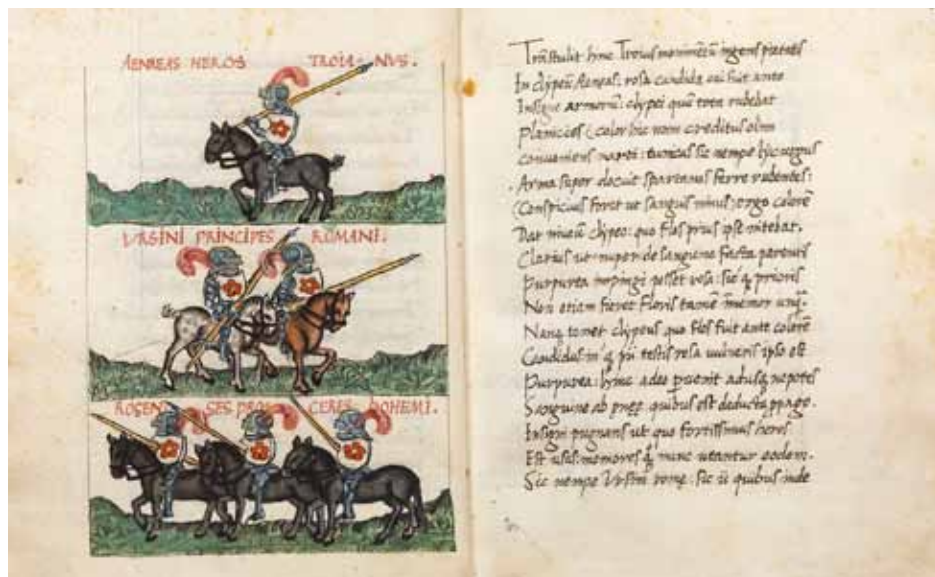 AENEAS HEROS TROIA NVS.
VRSINI PRINCIPES ROMANI.
ROSEN SES PRO CERES BOHEMI.
Trāstulit hinc Troius ingens pietatis
In clypeū Aeneas: rosa candida cui fuit ante
Insigne armorū: clypei quū tota rubebat
Planicies: color hic nom creditus olim
conueniens marti: tunicas sic nempe lycurgus
Arma super docuit spartanus ferre rubentes:
Conspicuus foret ut sanguis minus: ergo colorē
Dat niueū clypeo: quo flos prius ipse nitebat.
Clarius ut nuper de sanguine facta parentis
Purpurea impingi posset rosa: sic prioris
Non etiam fieret floris tamē īmemor
Nanq tenet clypeus quo flos fuit ante colorē
Candidus: pii testis rosa uulneris ipso est
Purpurea: hinc adeo peruenit adusq nepotes
Sanguine ab quibus est deducta ppago.
Insigni pugnans ut quo fortissimus heros
Est usus: memores nunc utantur eodem.
Sic nempe Vrsini rome: sic ii quibus inde